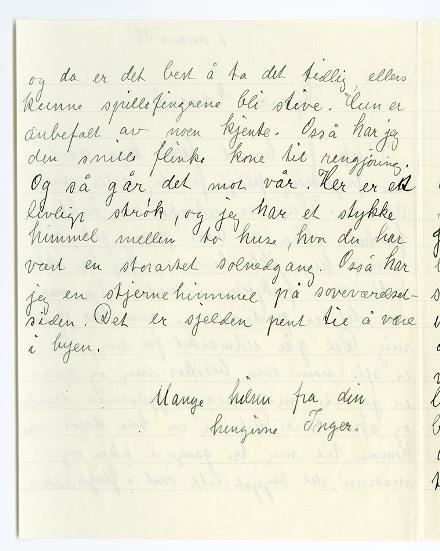 og da er det best å ta det tidlig, ellers
kunne spillefingrene bli stive. Hun er
anbefalt av noen kjente. Også har jeg
den snille flinke kone til rengjøring.
Og så går det mot vår. Her er et
livligt strøk, og jeg har et stykke
himmel mellem to huse, hvor der har
vært en storartet solnedgang. Også har
jeg en stjernehimmel på soveværelset-
siden. Det er sjelden pent til å være
i byen.
Mange hilsn fra din
hengivne Inger.